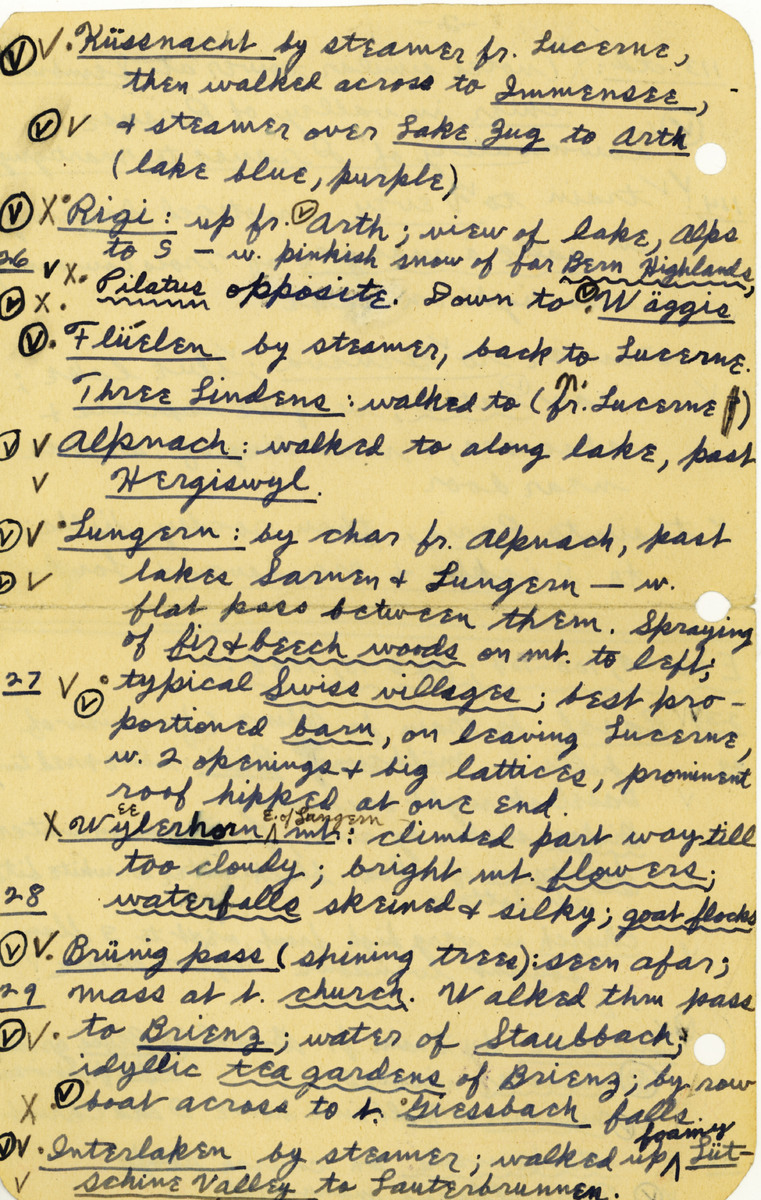 V V. Küssnacht by steamer fr. Lucerne,
then walked across to Immensee,
V V & steamer over Lake Zug to Arth
(lake blue, purple)
V X. Rigi: up fr. V Arth; view of lake, Alps
to S — w. pinkish snow of far Bern Highlands,
26 V X. Pilatus opposite. Down to V. Wäggis
V X.
V. Flüelen by steamer, back to Lucerne.
Three Lindens: walked to (fr. Lucerne)
V V Alpnach: walked to along lake, past
V Hergiswyl.
V V. Lungern: by char fr. Alpnach, past
V V lakes Sarnen & Lungern — w.
flat pass between them. Spraying
of fir & beech woods on mt. to left;
27 V V. typical Swiss villages; best pro-
portioned barn, on leaving Lucerne,
w. 2 openings & big lattices, prominent
roof hipped at one end.
X Wylerhorn E. of Lungern mt.: climbed part way till
too cloudy; bright mt. flowers;
28 waterfalls skeined & silky; goat flocks
V V. Brünig pass (shining trees): seen afar;
29 mass at t. church. Walked thru pass
V V. to Brienz; water of Staubbach;
idyllic tea gardens of Brienz; by row
X V boat across to t. Giessbach falls.
V V. Interlaken by steamer; walked up foamy Lüt-
V schine Valley to Lauterbrunnen.